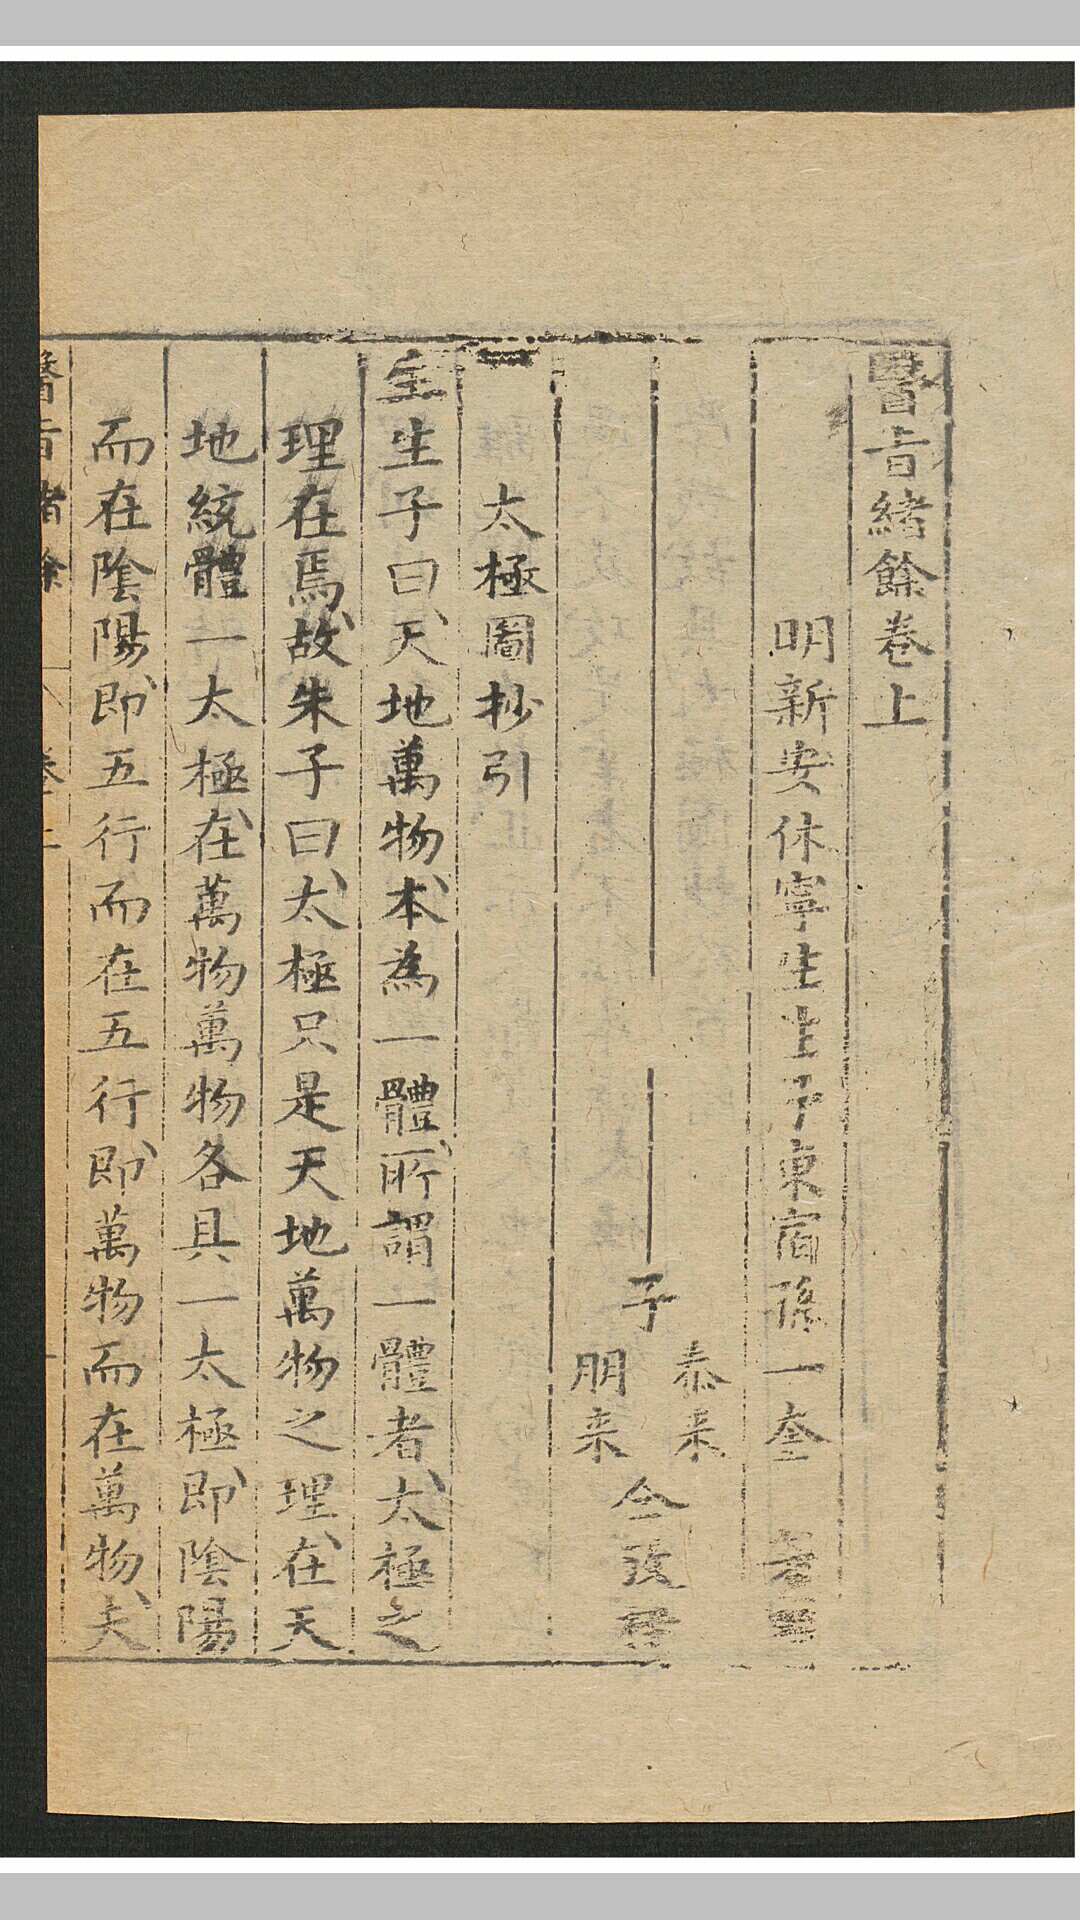 醫旨緒餘卷上
明新安休寧生生子東宿孫一奎著
子
泰来
朋来
仝
太極圖抄引
生生子曰天地萬物本為一體所謂一體者太極之
理在焉故朱子曰太極只是天地萬物之理在天
地統體一太極在萬物萬物各具一太極即陰陽
而在陰陽即五行而在五行即萬物而在萬物夫
醫旨緒餘 卷上